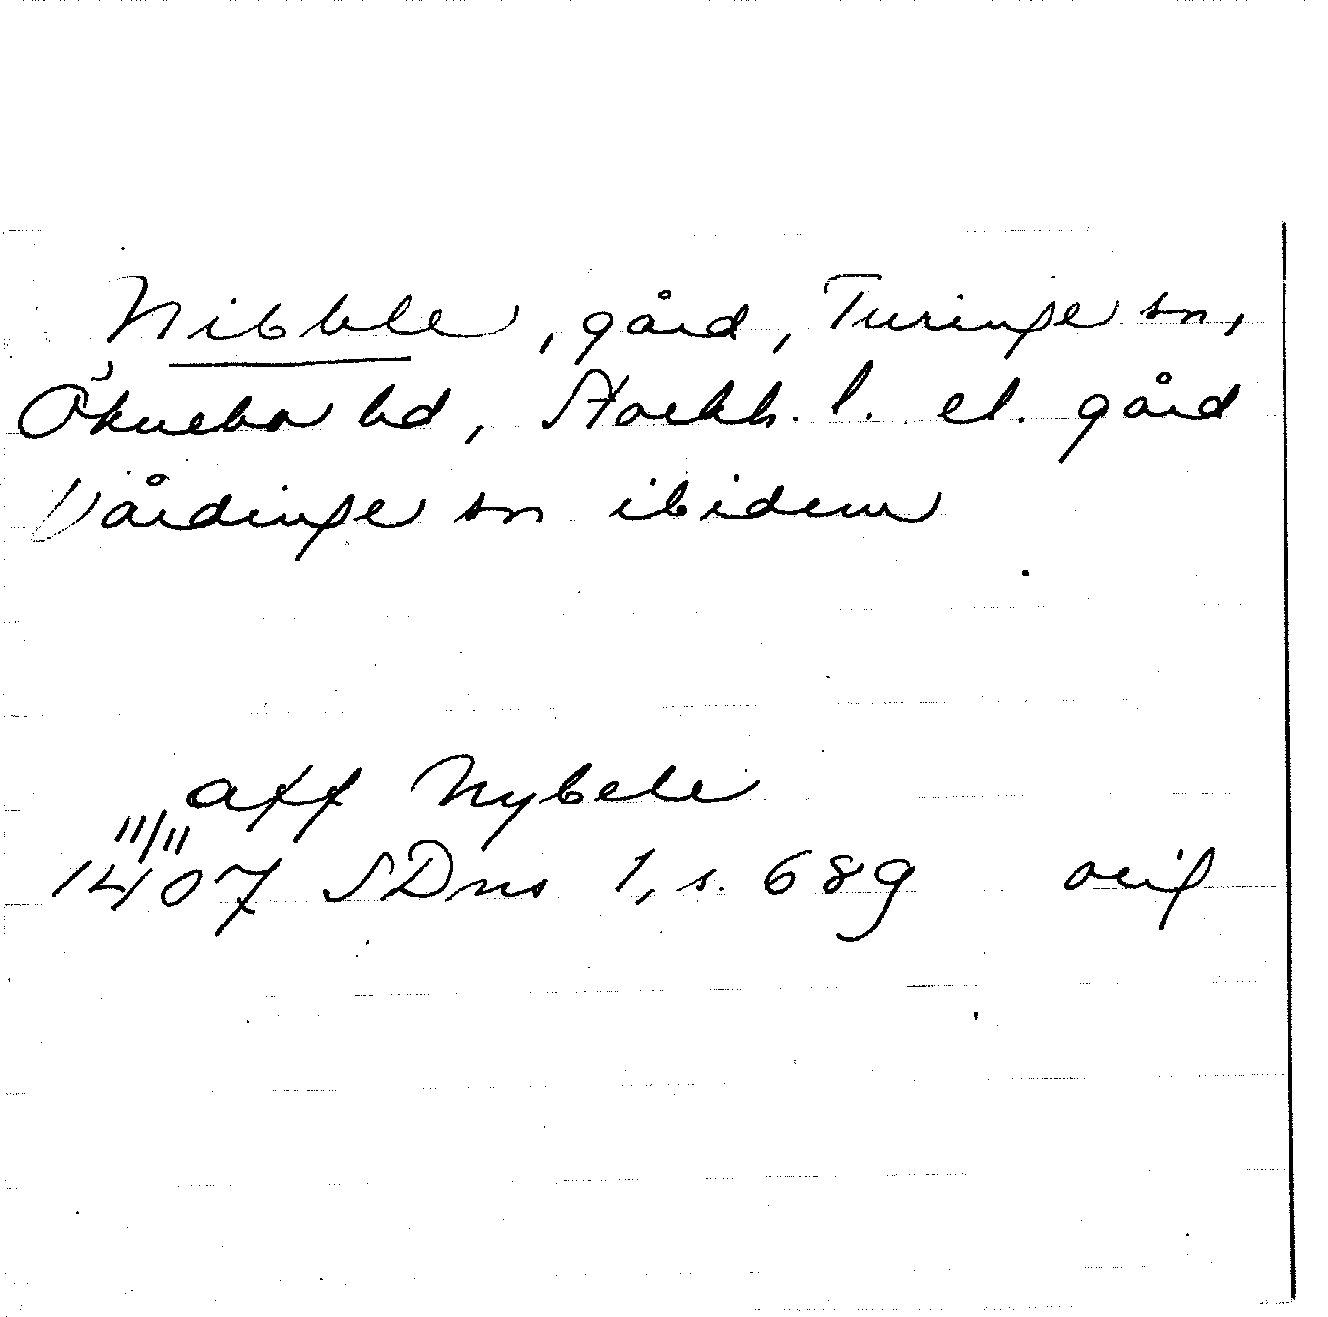 Nibble, gård, Turinge sn,
Öknebo hd, Stockh. l. el. gård
Vårdinge sn ibidem
aff Nybele
11/11
1407 SDns 1, s. 689 orig